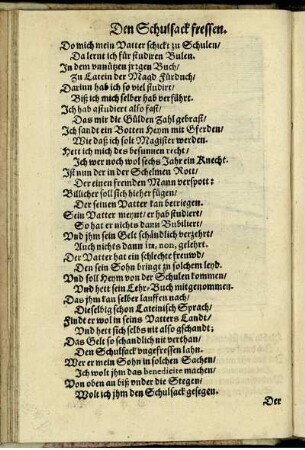 Den Schulsack fressen.
Do mich mein Vatter schickt zu Schulen/
Da lernt ich für studiren Bulen.
In dem vnnützen jrrgen Buch/
Zu Latein der Magd Fürbuch/
Darinn hab ich so viel studirt/
Biß ich mich selber hab verführt.
Ich hab astudiert also fast/
Das mir die Gülden Zahl gebrast/
Ich sandt ein Botten Heym mit Gferden/
Wie daß ich solt Magister werden.
Hett ich mich des besunnen recht/
Ich wer noch wol sechs Jahr ein Knecht.
Ist nun der in der Schelmen Rott/
Der einen frembden Mann verspott;
Billicher soll sich hieher fügen/
Der seinen Vatter kan betriegen.
Sein Vatter meynt/ er hab studiert/
So hat er nichts dann Bubiliert/
Vnd jhm sein Gelt schändlich verzehrt/
Auch nichts dann in, non, gelehrt.
Der Vatter hat ein schlechte freuwd/
Den sein Sohn bringt zu solchem leyd.
Vnd soll Heym von der Schulen kommen/
Vnd hett sein Lehr-Buch mitgenommen.
Das jhm kan selber lauffen nach/
Dieselbig schon Lateinisch Sprach/
Findt er wol in seins Vatters Landt/
Vnd hett sich selbs nit also gschandt;
Das Gelt so schandlich nit verthan/
Den Schulsack vngefressen lahn.
Wer er mein Sohn in solchen Sachen/
Ich wolt jhm das benedicite machen/
Von oben an biß vnder die Stegen/
Wolt ich jhm den Schulsack gesegen.
Der